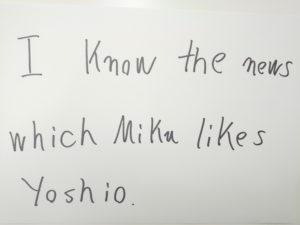 I know the news
which Miku likes
Yoshio.